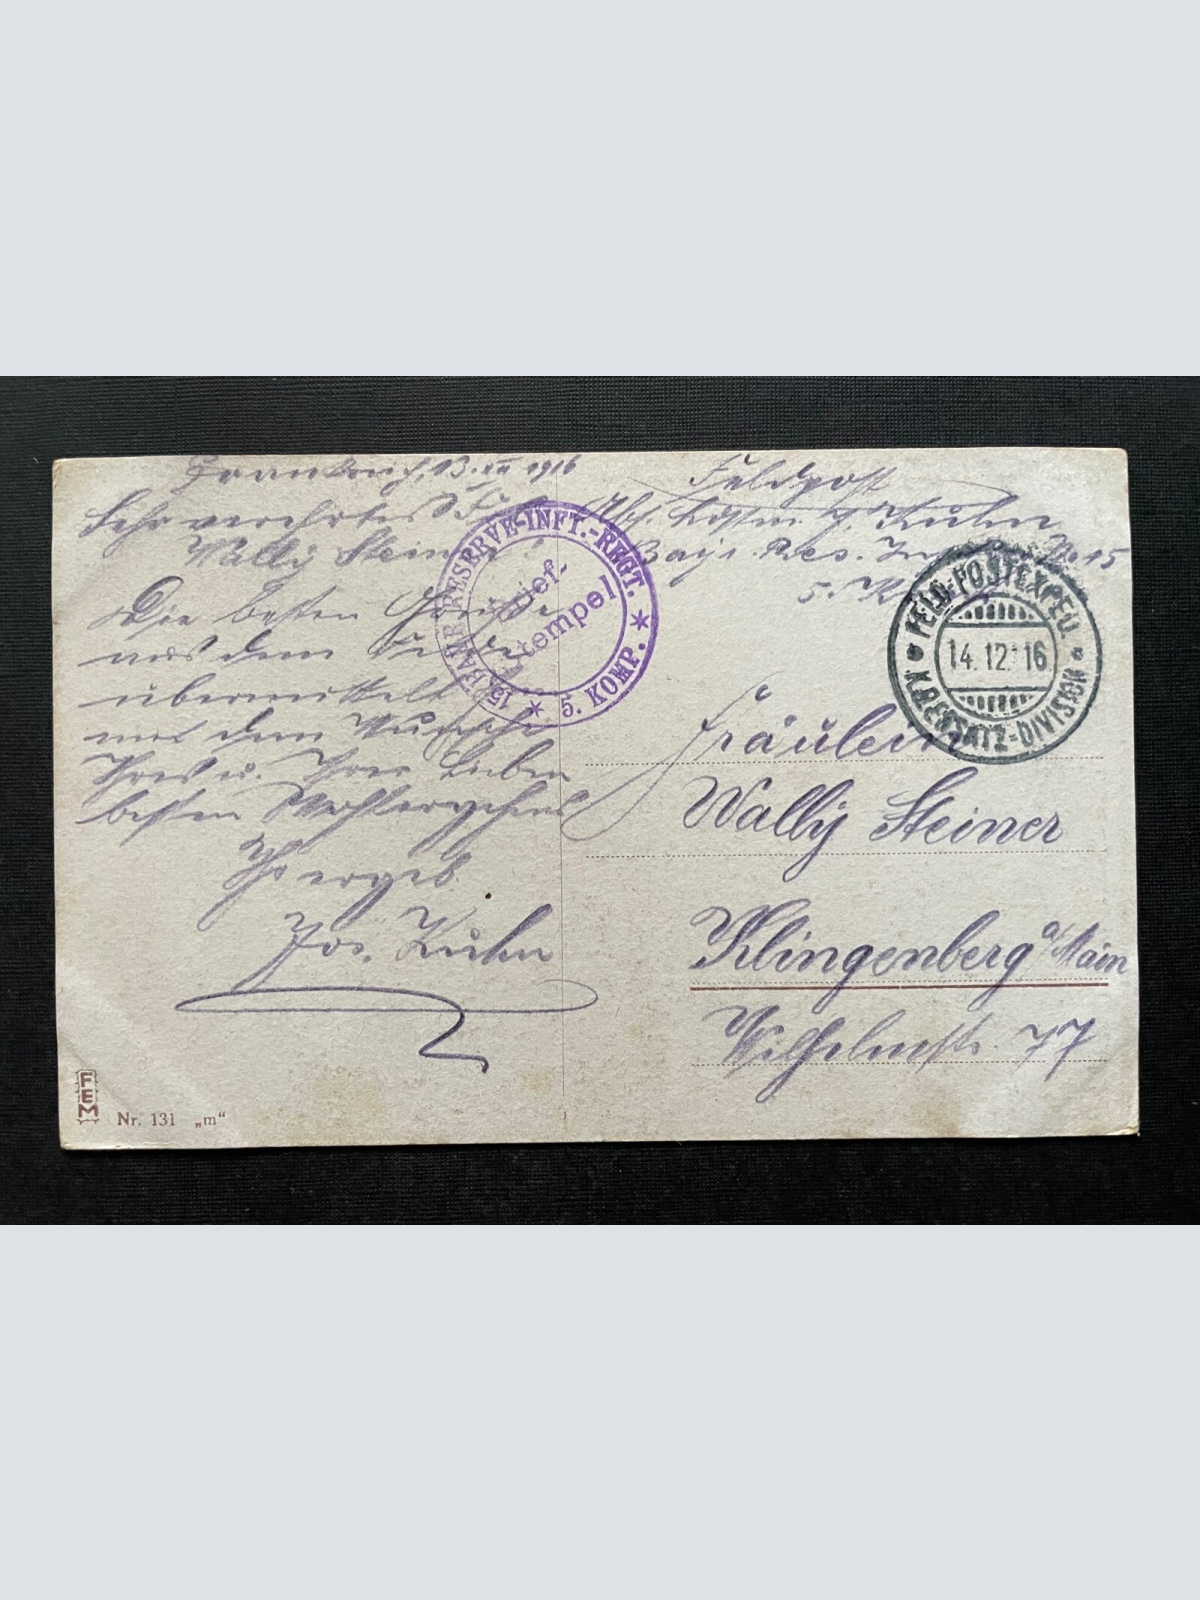 Frankreich, 13. XII 1916
Sehr verehrtes
Wally Steiner!
Die besten Grüße
aus dem Felde
übermittelt
mit dem Wunsche
Ihres u. Ihrer Lieben
besten Wohlergehens
Ihr ergeb.
Jos. Kuhn
Feldpost
Abs. J. Kuhn
Bayr. Res. Inf. No 15
5. K
15. BAYR. RESERVE-INFT.-REGT.
Brief-
stempel
* 5. KOMP. *
FELD-POSTEXPED.
14.12.16
K.B. ERSATZ-DIVISION
Fräulein
Wally Steiner
Klingenberg a/Main
Wilhelmstr. 77
FEM
Nr. 131 „m“